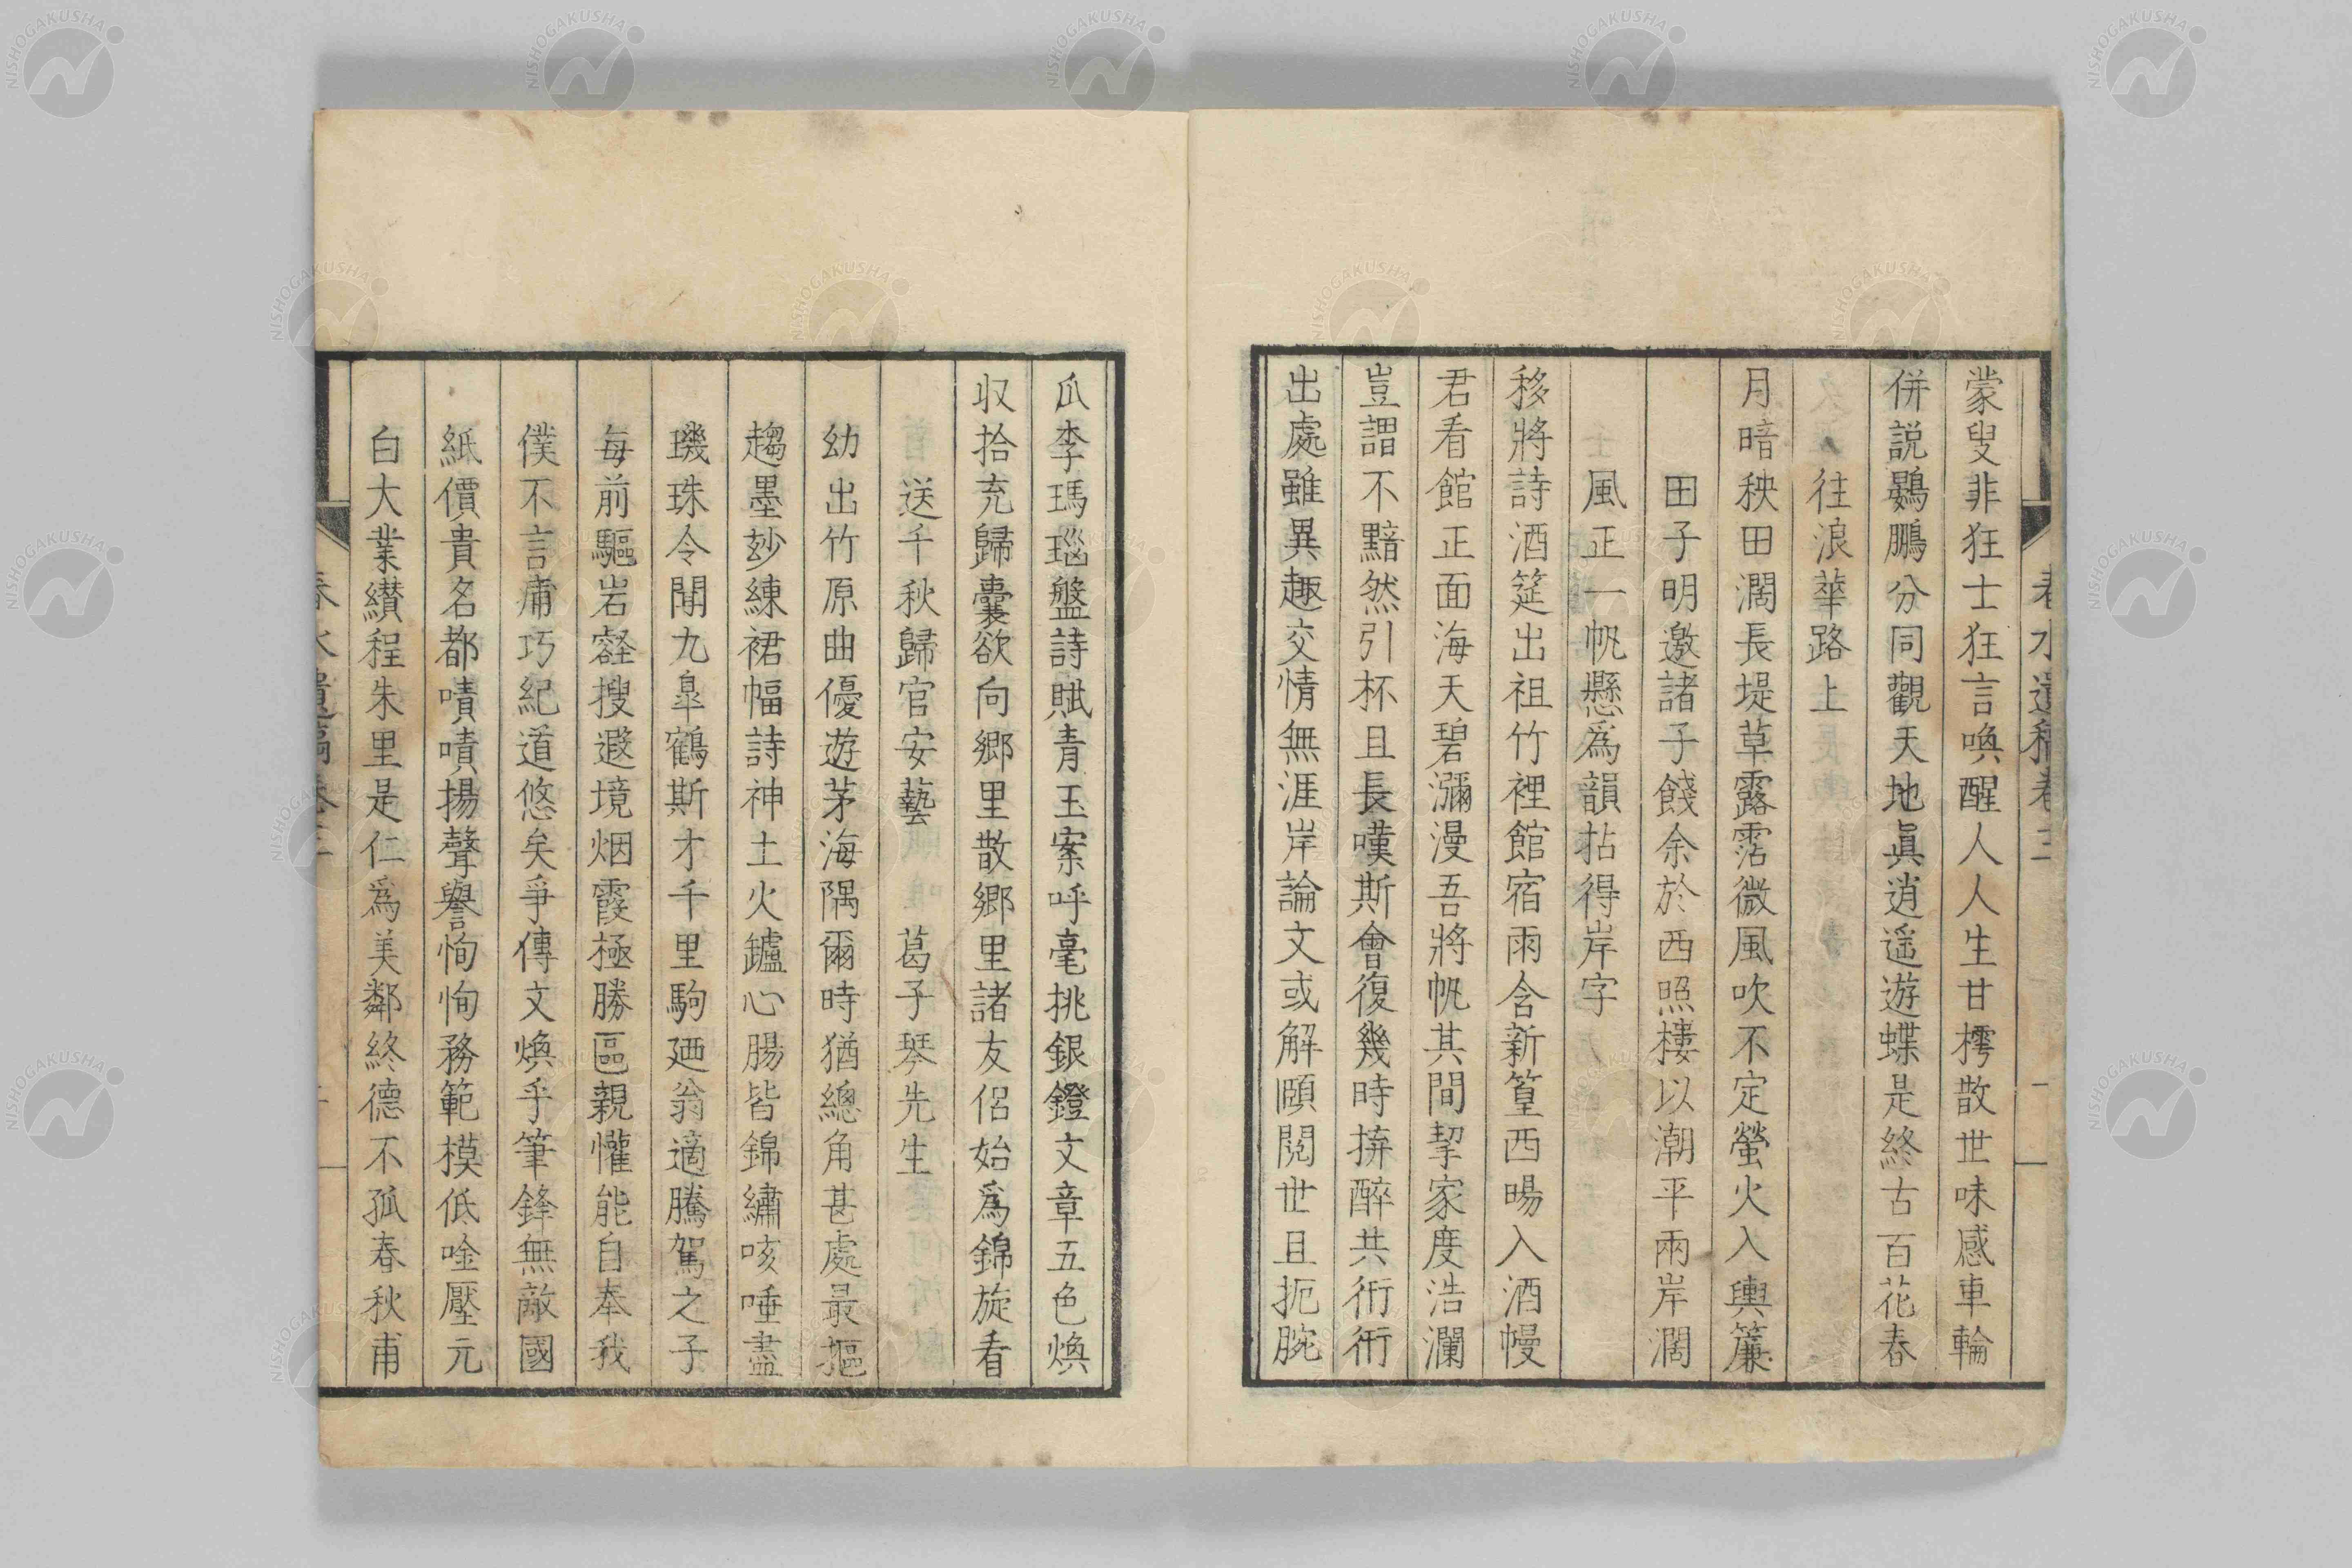 蒙叟非狂士狂言喚醒人人生甘樗散世味感車輪
併説鷃鵬分同觀天地眞逍遥遊蝶是終古百花春
往浪華路上
月暗秧田濶長堤草露霑微風吹不定螢火入輿簾
田子明邀諸子餞余於西照樓以潮平兩岸濶
風正一帆懸爲韻拈得岸字
移將詩酒筵出祖竹裡館宿雨含新篁西暘入酒幔
君看館正面海天碧瀰漫吾將帆其間挈家度浩瀾
豈謂不黯然引杯且長嘆斯會復幾時拚醉共衎衎
出處雖異趣交情無涯岸論文或解頤閲世且扼腕
瓜李瑪瑙盤詩賦青玉案呼毫挑銀鐙文章五色煥
収拾充歸嚢欲向郷里散郷里諸友侶始爲錦旋看
送千秋歸官安藝　葛子琴先生
幼出竹原曲優遊茅海隅爾時猶總角甚處最摳
趨墨玅練裙幅詩神土火鑪心腸皆錦繡咳唾盡
璣珠令聞九皐鶴斯才千里駒廼翁適騰駕之子
毎前驅岩壑搜遐境烟霞極勝區親懽能自奉我
僕不言痡巧紀道悠矣爭傳文煥乎筆鋒無敵國
紙價貴名都嘖嘖揚聲譽恂恂務範模低唫壓元
白大業纉程朱里是仁爲美鄰終德不孤春秋甫
春水遺稿卷三